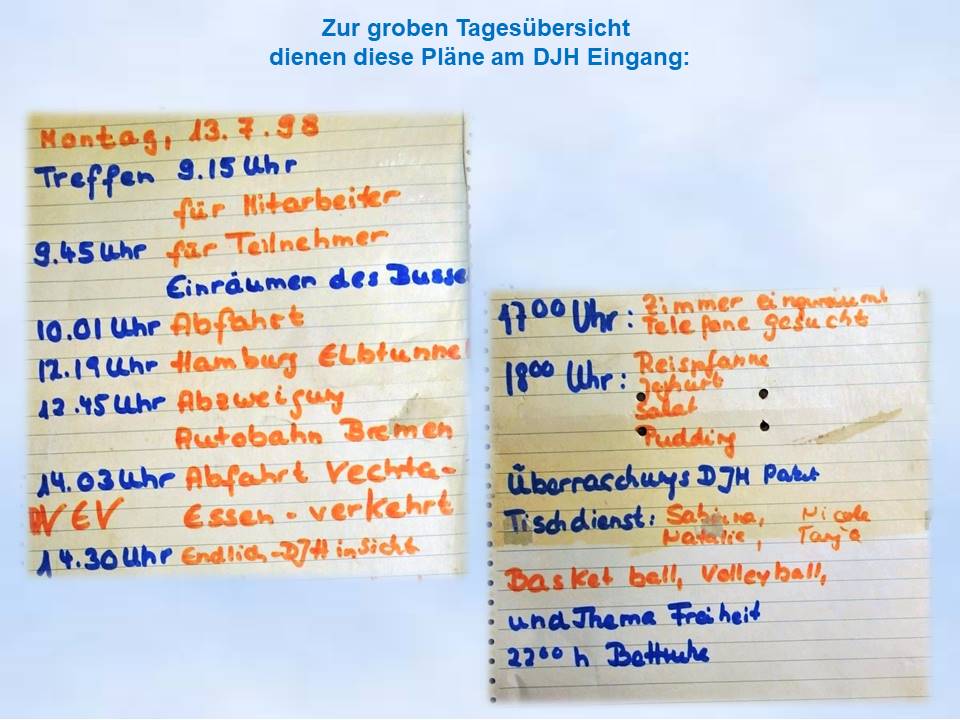 Zur groben Tagesübersicht
dienen diese Pläne am DJH Eingang:
Montag, 13.7.98
Treffen 9.15 Uhr
für Mitarbeiter
9.45 Uhr für Teilnehmer
Einräumen des Busse
10.01 Uhr Abfahrt
12.19 Uhr Hamburg Elbtunnel
12.45 Uhr Abzweigung
Autobahn Bremen
14.03 Uhr Abfahrt Vechta-
NEV Essen-verkehrt
14.30 Uhr Endlich-DJH in Sicht
17 00 Uhr: Zimmer eingeräumt
Telefone gesucht
18 00 Uhr: Reispfanne
Joghurt
Salat
Pudding
Überraschungs DJH Paket
Tischdienst: Sabrina, Nicole
Natalie, Tanja
Basket ball, Volleyball,
und Thema Freiheit
22 00 h Bettruhe